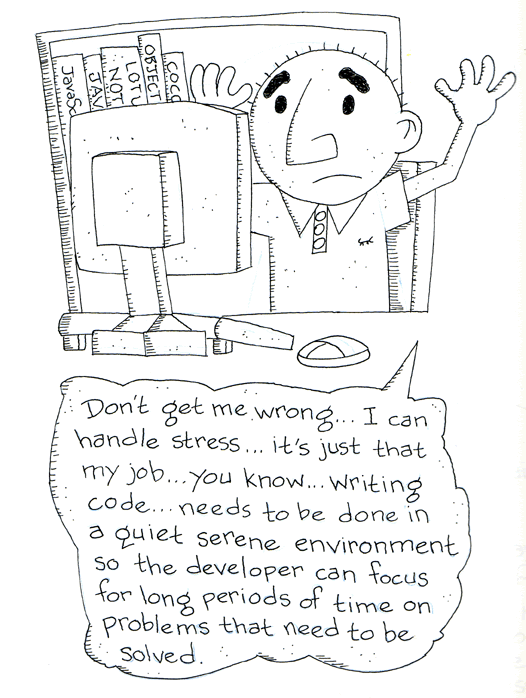 JavaSc
JAV
LOTU
NOT
OBJECT
COCO
Don't get me wrong... I can
handle stress... it's just that
my job... you know... writing
code... needs to be done in
a quiet serene environment
so the developer can focus
for long periods of time on
problems that need to be
solved.